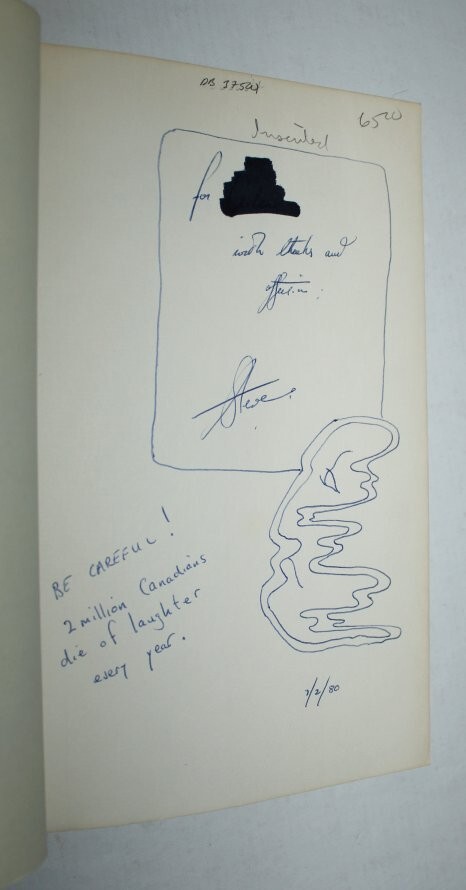 Inscribed
for
with thanks and
affection.
Steve.
BE CAREFUL!
2 million Canadians
die of laughter
every year.